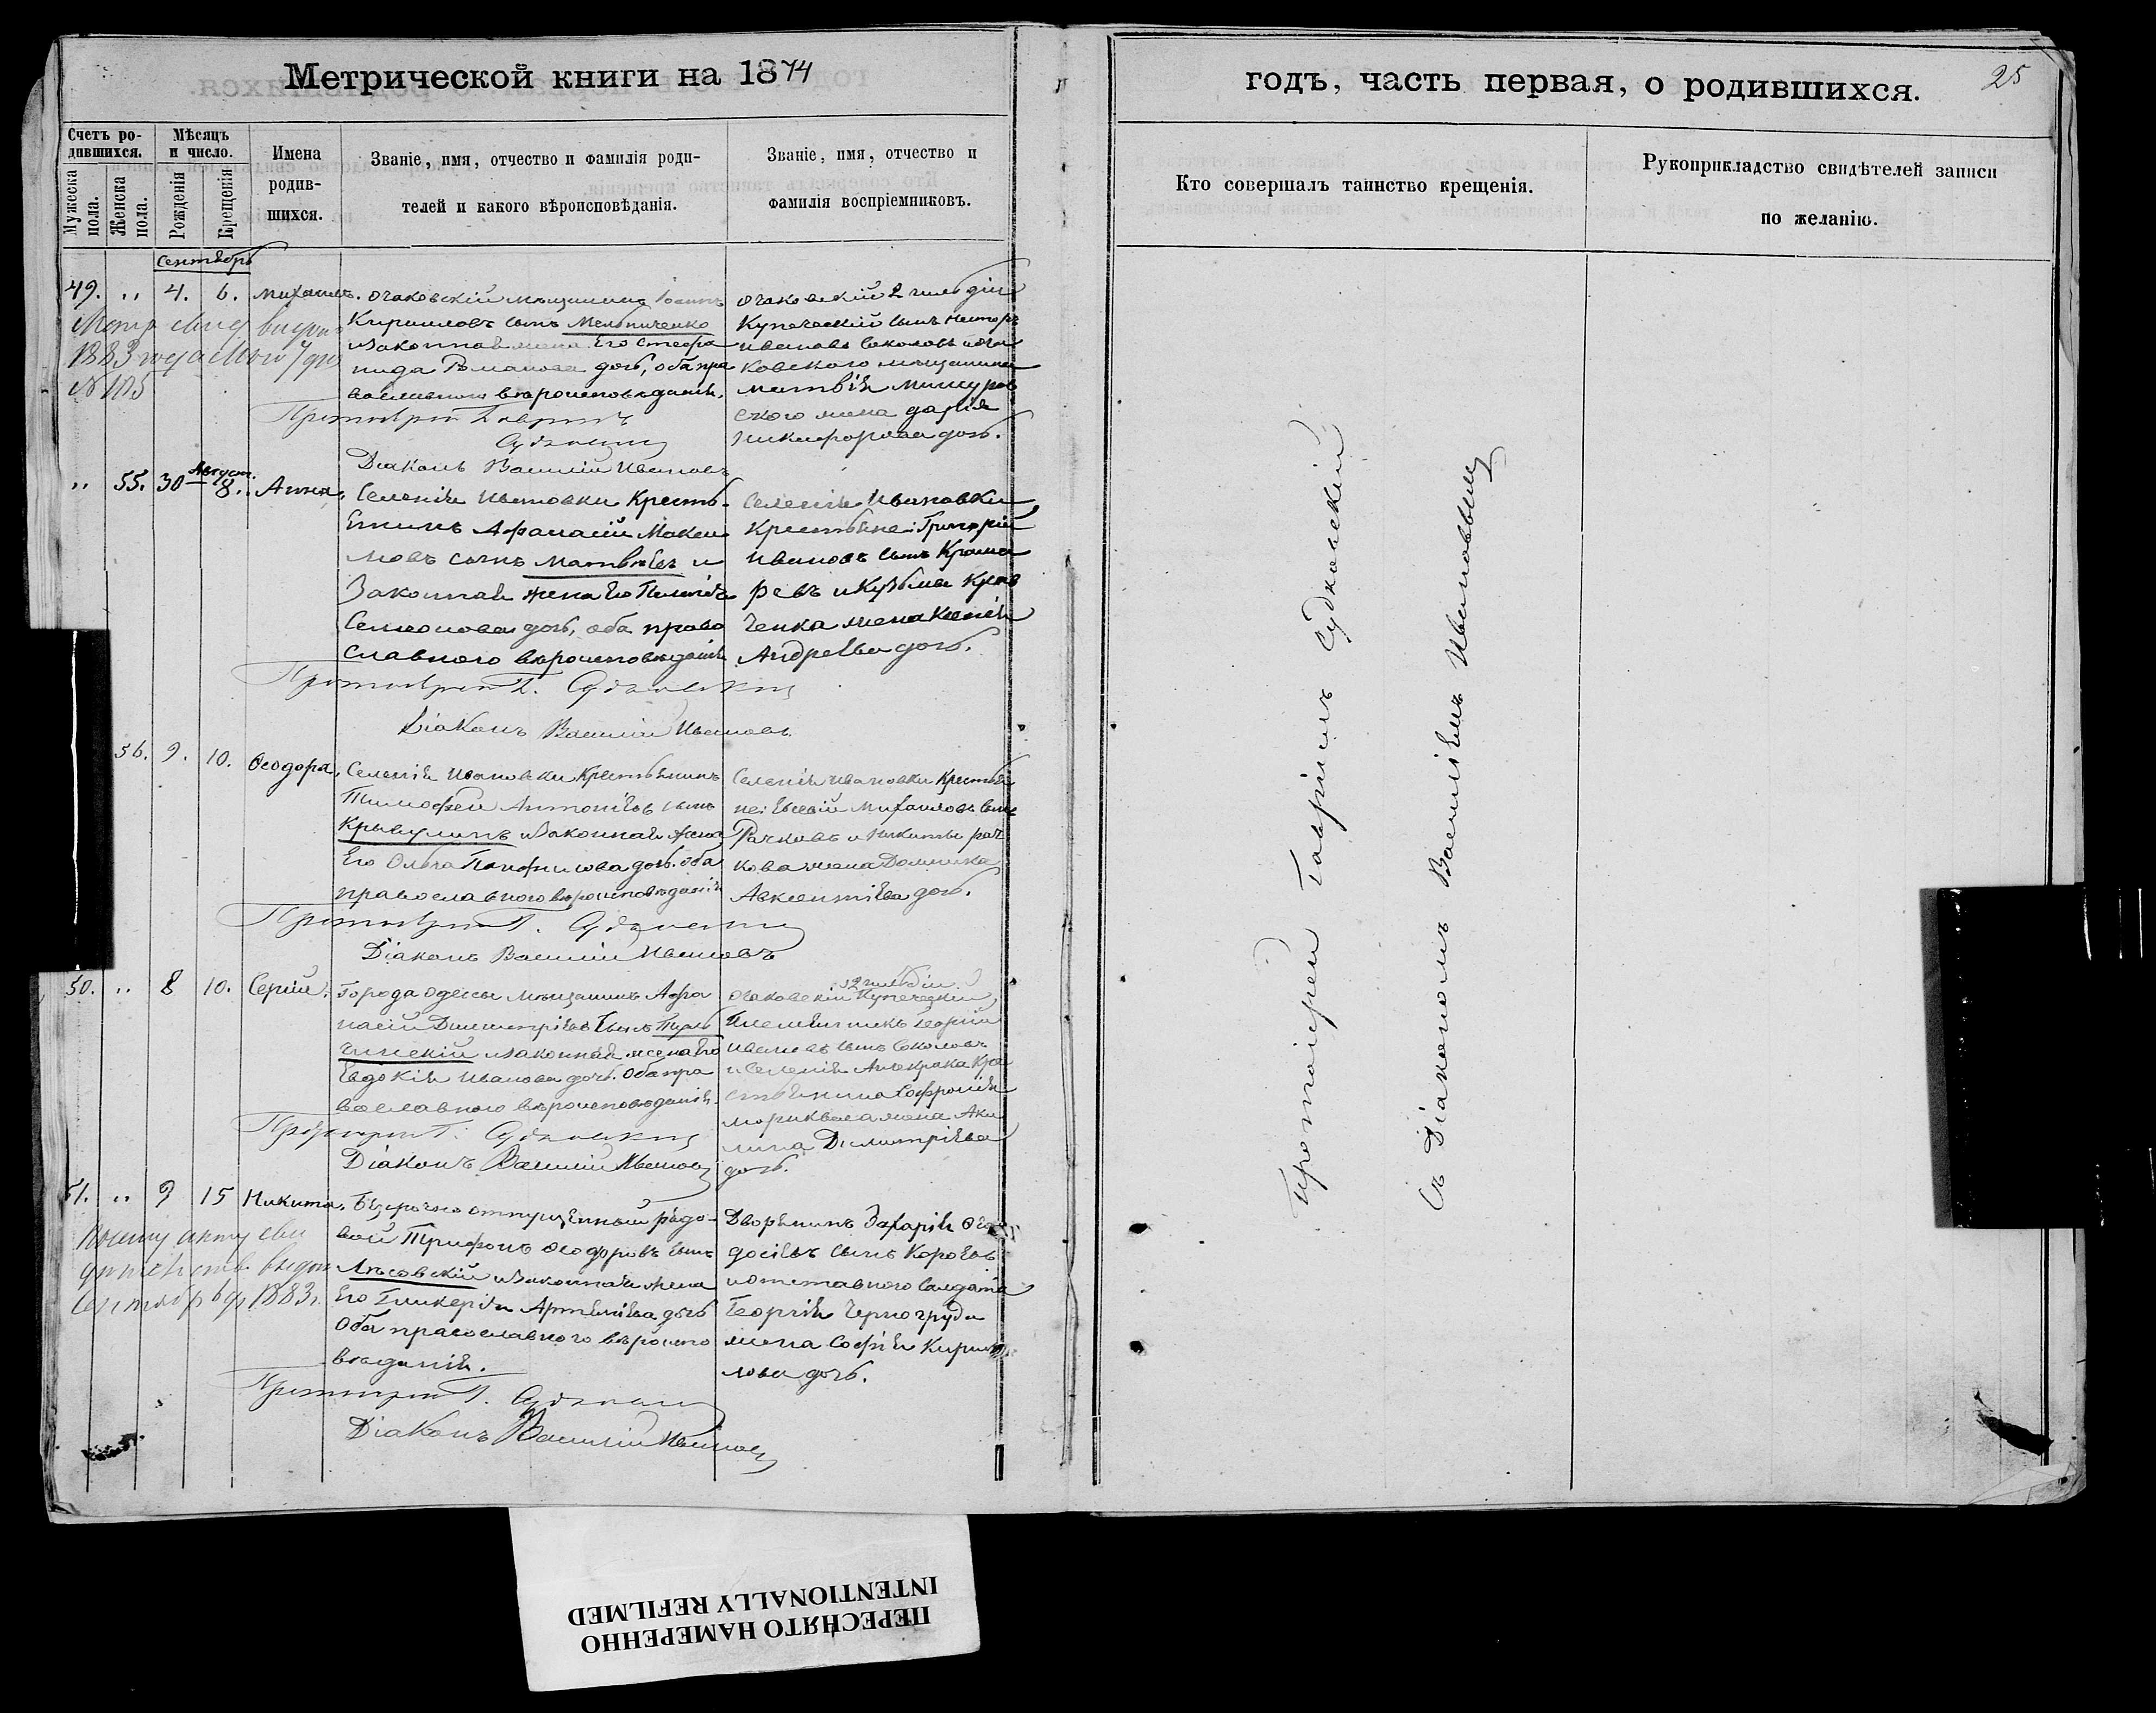 Метрической книги на 1874
годъ, часть первая, о родившихся.
25
Счетъ ро-
дившихся.
Мужеска
пола.
Женска
пола.
Мѣсяцъ
и число.
Рожденія
Крещенія
Имена
родив-
шихся.
Званіе, имя, отчество и фамилія роди-
телей и какого вѣроисповѣданія.
Званіе, имя, отчество и
фамилія воспріемниковъ.
Кто совершалъ таинство крещенія.
Рукоприкладство свидѣтелей записи
по желанію.
Сентябрь
49. „ 4. 6. Михаилъ.
Очаковскій мѣщанинъ Іоаннъ
Кирилловъ сынъ Мельниченко
и законная жена Его Стефа
нида Романова дочь, оба пра
вославнаго вѣроисповѣданія.
Діаконъ Василій Ивановъ
Очаковскій 2 гильдіи
Купеческій сынъ Несторъ
Ивановъ Соколовъ и Оча
ковского мѣщанина
Матвѣя Мишуров
ского жена Дарія
Никифорова дочь.
1883 года Мая 7 дня
№ 105
„ 55. 30 Август. 8. Анна.
Селенія Ивановки Кресть-
Енинъ Афанасій Макси
мовъ сынъ Матвѣевъ и
Законная жена Его Пелагія
Семионова дочь, оба право
славного вѣроисповѣданія
Протоіерей Г. Судковскій
Діаконъ Василій Ивановъ
Селенія Ивановки
Крестьяне: Григорій
Ивановъ сынъ Крама
ревъ и Кузьмы Крав
ченка жена Ксенія
Андреева дочь.
56. 9. 10. Ѳеодора.
Селенія Ивановки Крестьянинъ
Тимофей Антоніевъ сынъ
Кривулинъ и законная жена
Его Ольга Панфилова дочь. оба
православного вѣроисповѣданія
Протоіерей Г. Судковскій
Діаконъ Василій Ивановъ
Селенія Ивановки Крестья
не: Евсевій Михаиловъ сынъ
Рачковъ и Никиты Рач
кова жена Домника
Авксентіева дочь.
50. „ 8 10. Сергій.
Города Одессы мѣщанинъ Афа
насій Димитріевъ сынъ
и законная жена Его
Евдокія Иванова дочь. Оба пра
вославного вѣроисповѣданія.
Протоіерей Г. Судковскій
Діаконъ Василій Ивановъ
2 гильдіи
Очаковскій Купеческій
Племянникъ Георгій
Ивановъ сынъ Соколовъ
и Селенія Анчекрака Кре
стьянина Софронія
жена Аки
лина Димитріева
дочь.
51. „ 9 15 Никита.
Безсрочно отпущенный рядо-
вой Трифонъ Ѳеодоровъ сынъ
Лясовскій и законная жена
Его Гликерія Артеміева дочь
Оба православного вѣроиспо
вѣданія.
Протоіерей Г. Судковскій
Діаконъ Василій Ивановъ
Дворянинъ Захарія Ѳео
досіевъ сынъ Короѣвъ
и отставного солдата
Георгія Черногруда
жена Софія Кирил
лова дочь.
По сему акту сви
дѣтельств. выдан
Сентябр 6 д. 1883 г.
Протоіерей Гавріилъ Судковскій
Съ Діакономъ Василіемъ Ивановымъ
ПЕРЕСНЯТО НАМЕРЕННО
INTENTIONALLY REFILMED